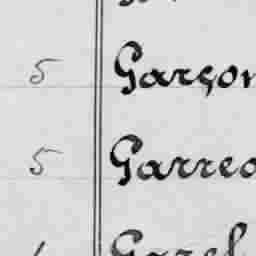 5 Garçon
5 Garreo
Garel